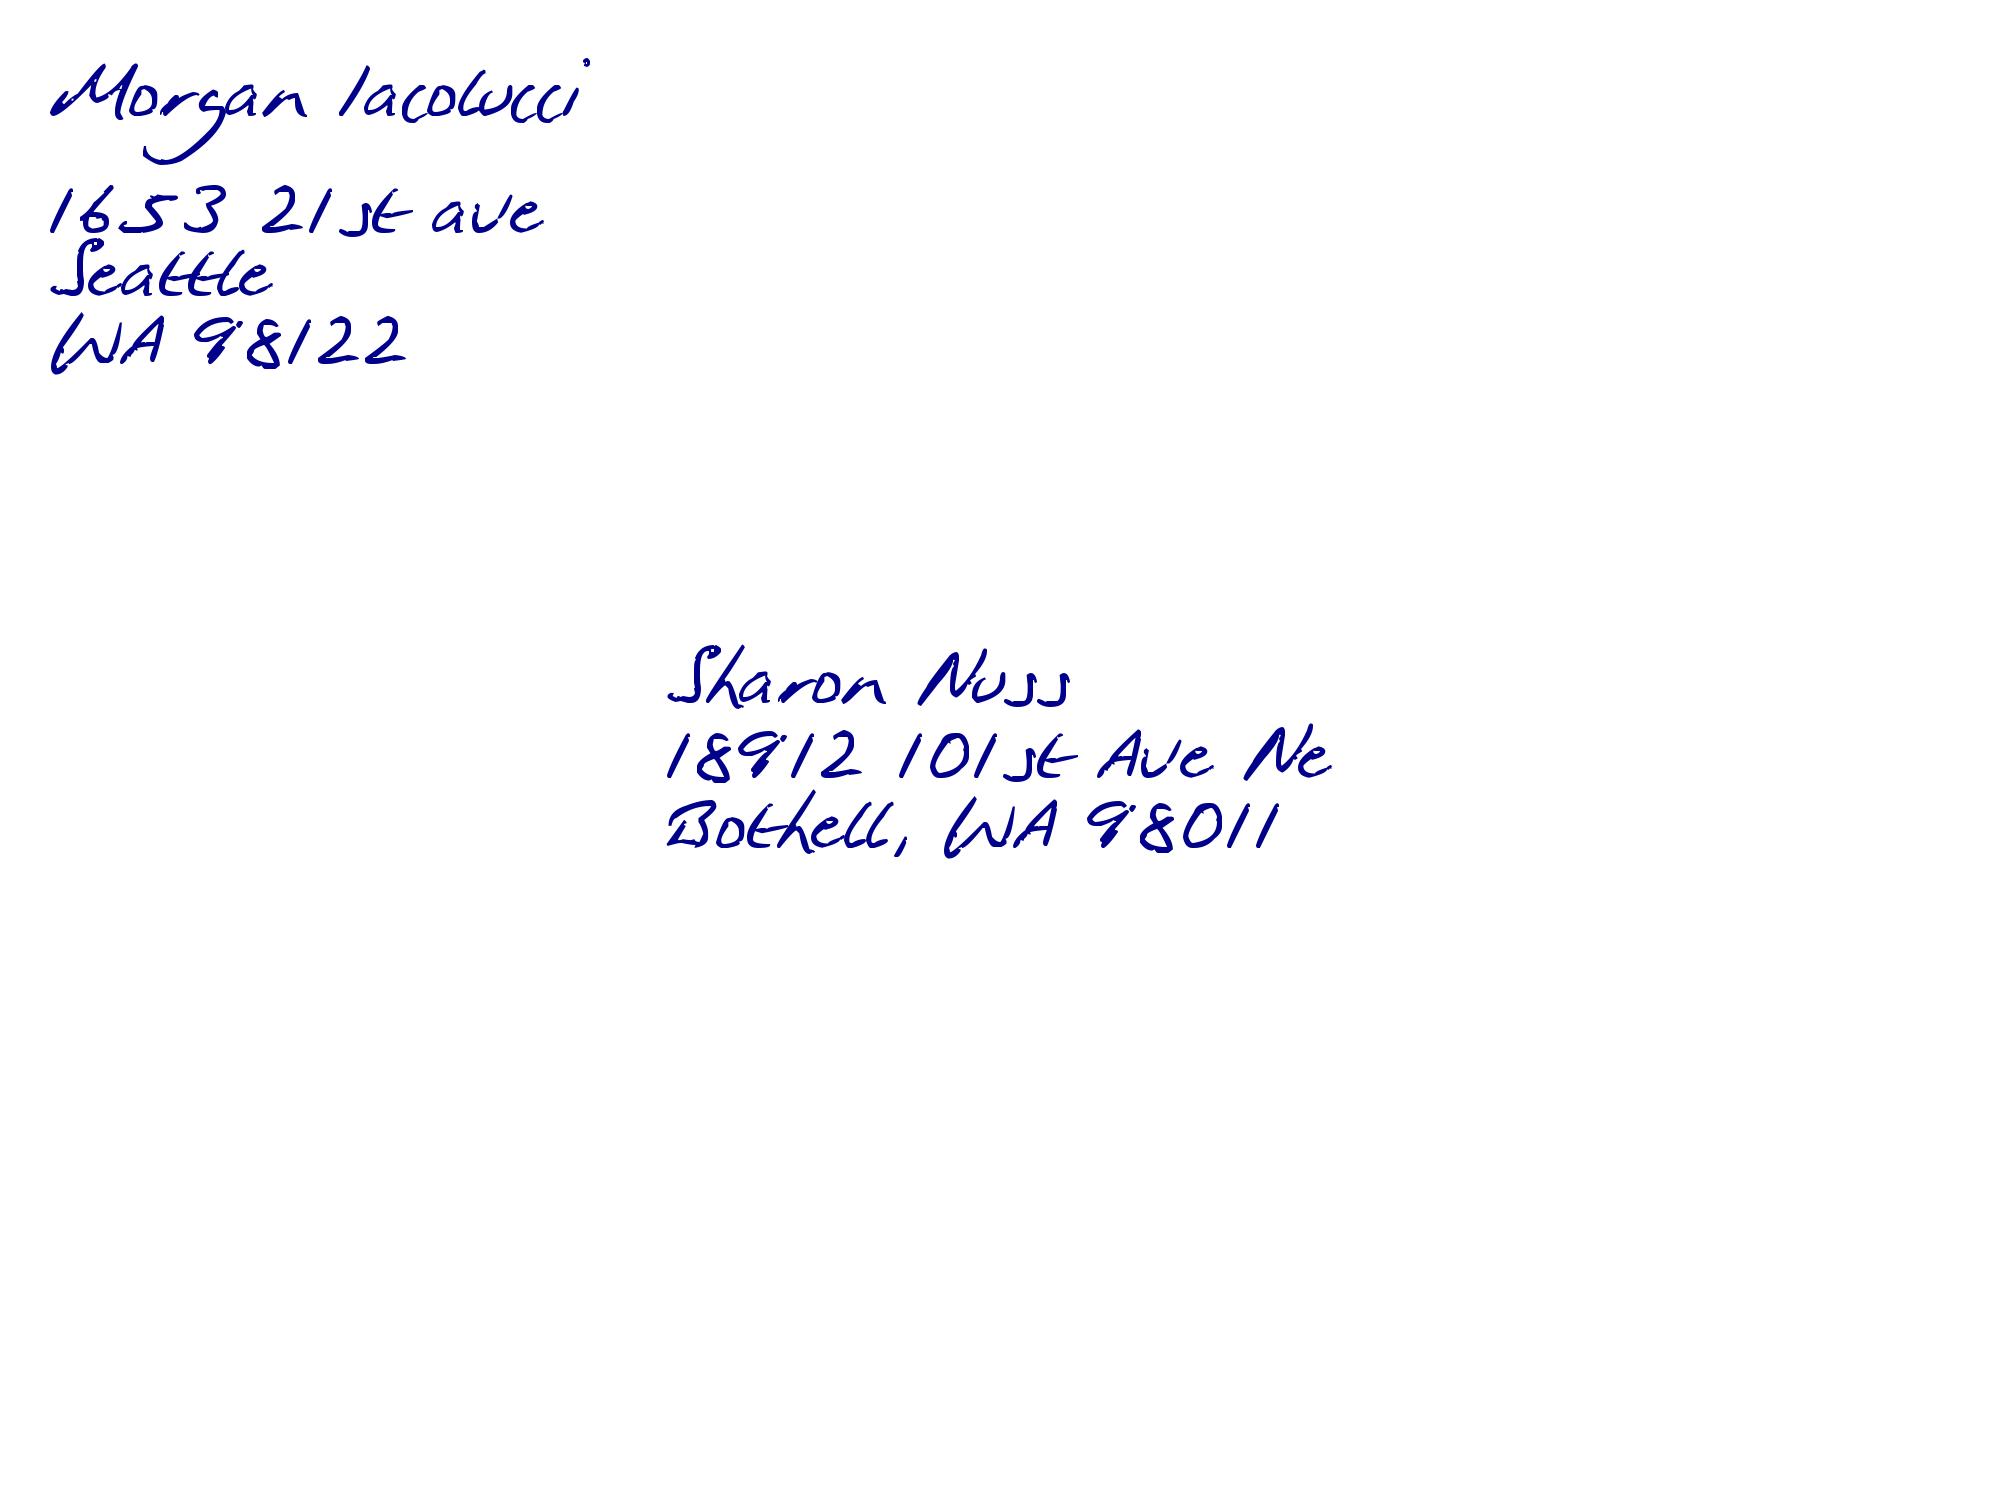 Morgan Iacolucci
1653 21st ave
Seattle
WA 98122
Sharon Nuss
18912 101st Ave Ne
Bothell, WA 98011